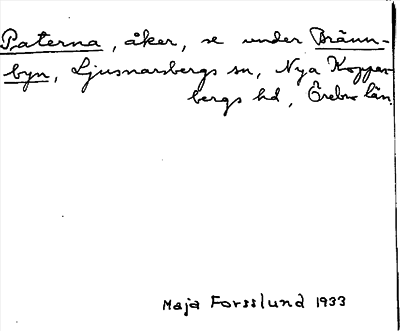 Paterna, åker, se under Bränn-
byn, Ljusnarsbergs sn, Nya Koppar-
bergs hd, Örebro län.
Maja Forsslund 1933